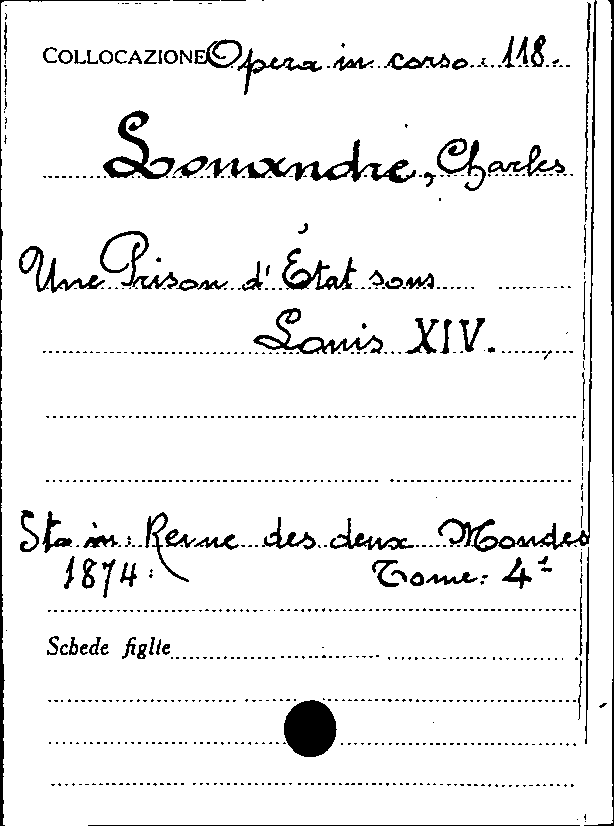 COLLOCAZIONE Opera in corso: 118.
Louandre, Charles
Une Prison d'État sous
Louis XIV.
Sta in: Revue des deux Mondes
1874: Tome: 4¹
Schede figlie